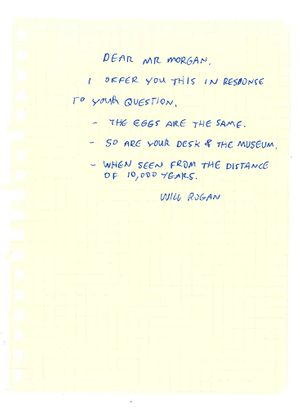 DEAR MR MORGAN,
I OFFER YOU THIS IN RESPONSE
TO YOUR QUESTION.
- THE EGGS ARE THE SAME.
- SO ARE YOUR DESK & THE MUSEUM.
- WHEN SEEN FROM THE DISTANCE
OF 10,000 YEARS.
WILL ROGAN